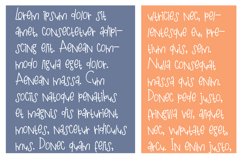 Lorem ipsum dolor sit
amet, consectetuer adipi-
scing elit. Aenean com-
modo ligula eget dolor.
Aenean massa. Cum
sociis natoque penatibus
et magnis dis parturient
montes, nascetur ridiculus
mus. Donec quam felis,
ultricies nec, pel-
lentesque eu, pre-
tium quis, sem.
Nulla consequat
massa quis enim.
Donec pede justo,
fringilla vel, aliquet
nec, vulputate eget,
arcu. In enim justo,